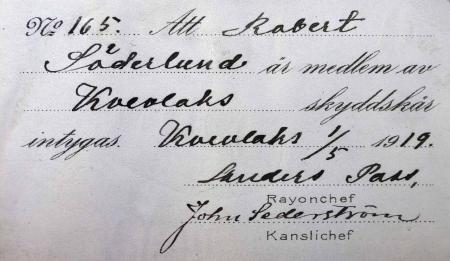 No 165. Att Robert
Söderlund är medlem av
Kvevlaks skyddskår
intygas. Kvevlaks 1/5 1919.
Anders Pass,
Rayonchef
John Sederström
Kanslichef